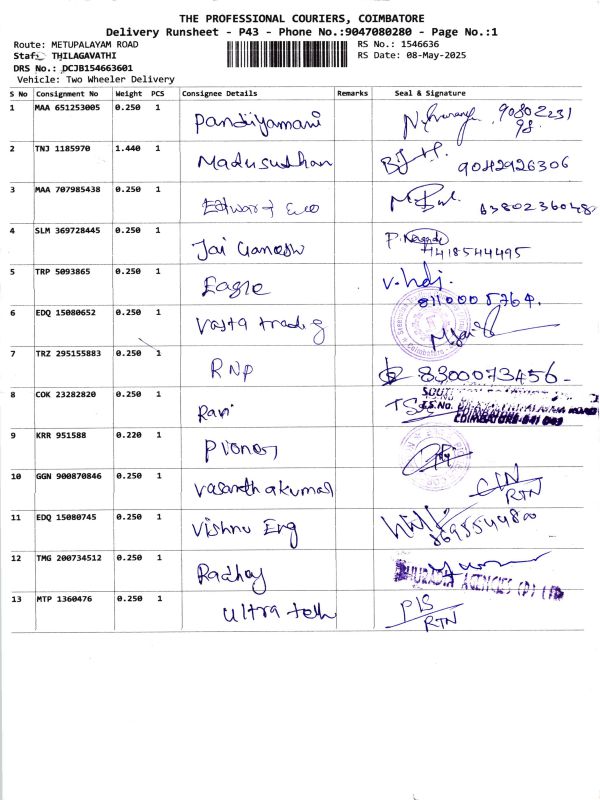 THE PROFESSIONAL COURIERS, COIMBATORE
Delivery Runsheet - P43 - Phone No.:9047080280 - Page No.:1
Route: METUPALAYAM ROAD RS No.: 1546636
Staff: THILAGAVATHI RS Date: 08-May-2025
DRS No.: DCJB154663601
Vehicle: Two Wheeler Delivery
S No Consignment No Weight PCS Consignee Details Remarks Seal & Signature
1 MAA 651253005 0.250 1 Pandiyamani 90802231
98.
2 TNJ 1185970 1.440 1 Madusudhan 9042926306
3 MAA 707985438 0.250 1 6380236048
4 SLM 369728445 0.250 1 Jai Ganesh
7418544495
5 TRP 5093865 0.250 1 Eagle
6 EDQ 15080652 0.250 1 Vasta trading
7 TRZ 295155883 0.250 1 RNP 8300073456
8 COK 23282820 0.250 1 Ravi
COIMBATORE-641 043
9 KRR 951588 0.220 1
10 GGN 900870846 0.250 1 Vasanthakumar
RTN
11 EDQ 15080745 0.250 1 Vishnu Eng 8695549800
12 TMG 200734512 0.250 1
AGENCIES (P) LTD
13 MTP 1360476 0.250 1 Ultra teth P/S
RTN